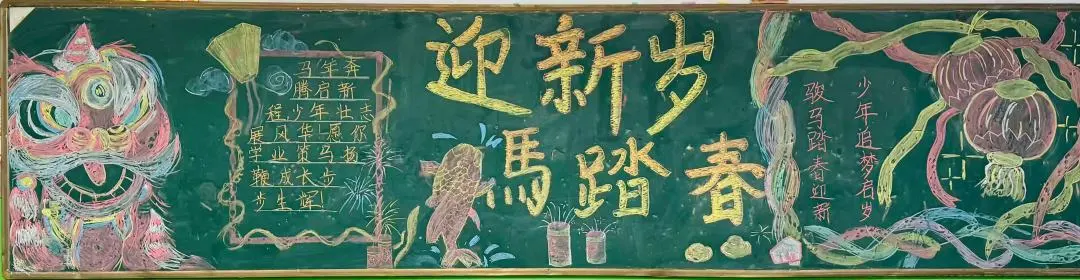 马年奔
腾启新
程,少年壮志
展风华!愿你
学业策马扬
鞭成长步
步生辉!
迎新岁
馬踏春
少年追梦启岁
骏马踏春迎新